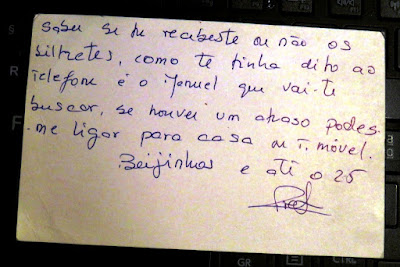 saber se tu recebeste ou não os
bilhetes, como te tinha dito ao
telefone é o Manuel que vai-te
buscar, se houver um atraso podes-
-me ligar para casa ou T. móvel.
Beijinhos e até o 25